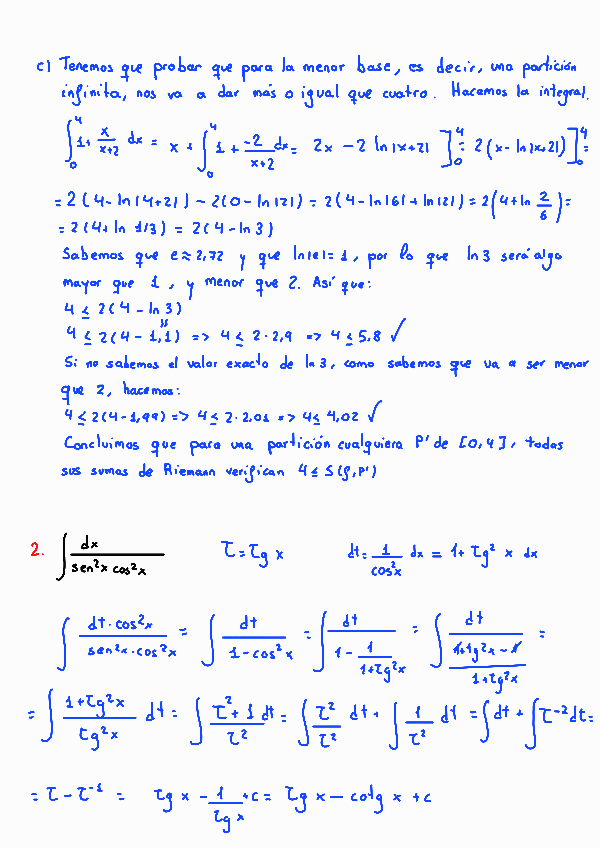 c) Tenemos que probar que para la menor base, es decir, una partición
infinita, nos va a dar más o igual que cuatro. Hacemos la integral.
∫₀⁴ 1 + x/(x+2) dx = x + ∫₀⁴ 1 + -2/(x+2) dx = 2x - 2 ln|x+2| ]₀⁴ = 2(x - ln|x+2|) ]₀⁴ =
= 2(4 - ln|4+2|) - 2(0 - ln|2|) = 2(4 - ln|6| + ln|2|) = 2(4 + ln 2/6) =
= 2(4 + ln 1/3) = 2(4 - ln 3)
Sabemos que e ≈ 2,72 y que ln|e| = 1, por lo que ln 3 será algo
mayor que 1, y menor que 2. Así que:
4 ≤ 2(4 - ln 3)
4 ≤ 2(4 - 1,1) => 4 ≤ 2·2,9 => 4 ≤ 5,8 ✓
Si no sabemos el valor exacto de ln 3, como sabemos que va a ser menor
que 2, hacemos:
4 ≤ 2(4 - 1,99) => 4 ≤ 2·2,01 => 4 ≤ 4,02 ✓
Concluimos que para una partición cualquiera P' de [0,4], todas
sus sumas de Riemann verifican 4 ≤ S(f,P')
2. ∫ dx/(sen²x cos²x) t = tg x dt = 1/cos²x dx = 1 + tg² x dx
∫ dt·cos²x/(sen²x·cos²x) = ∫ dt/(1 - cos²x) = ∫ dt/(1 - 1/(1+tg²x)) = ∫ dt/((1+tg²x - 1)/(1+tg²x)) =
= ∫ (1+tg²x)/tg²x dt = ∫ (t²+1)/t² dt = ∫ t²/t² dt + ∫ 1/t² dt = ∫ dt + ∫ t⁻² dt =
= t - t⁻¹ = tg x - 1/tg x + c = tg x - cotg x + c